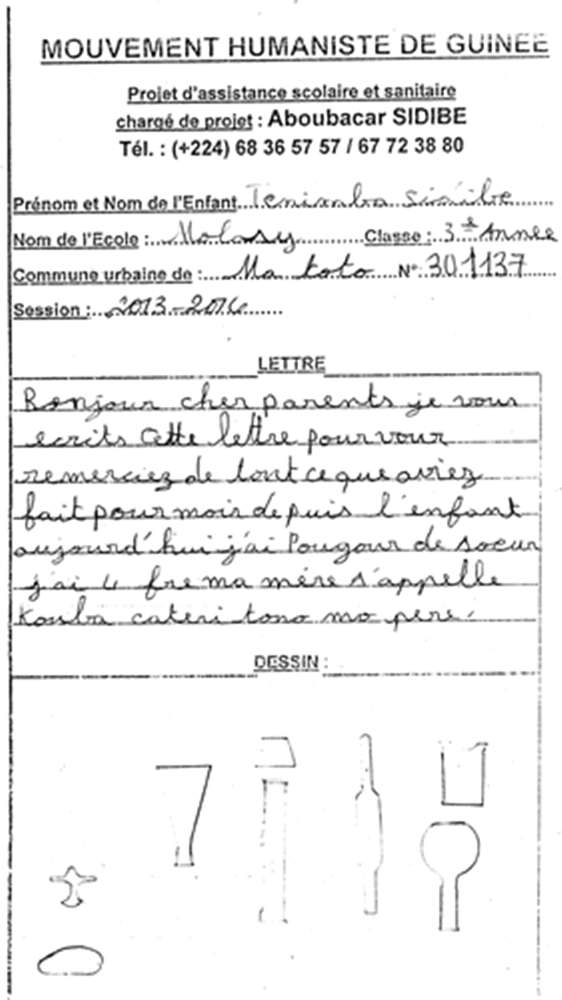 MOUVEMENT HUMANISTE DE GUINEE
Projet d'assistance scolaire et sanitaire
chargé de projet : Aboubacar SIDIBE
Tél. : (+224) 68 36 57 57 / 67 72 38 80
Prénom et Nom de l'Enfant Tenimba
Nom de l'Ecole : Molasy Classe : 3è Année
Commune urbaine de : Ma toto N° 301137
Session : 2013-2014
LETTRE
Bonjour cher parents je vous
ecrits Cette lettre pour vour
remerciez de tout ce que aviez
fait pour moir depuis l'enfant
aujourd'hui j'ai de soeur
j'ai 4 fre ma mère s'appelle
Kouba mo pere.
DESSIN :